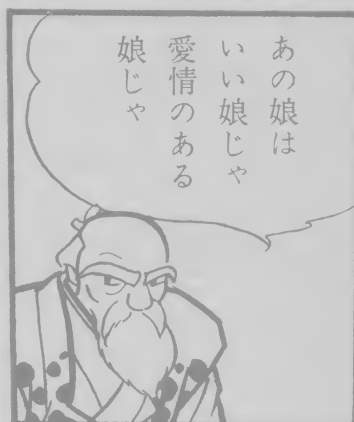 あの娘は
いい娘じゃ
愛情のある
娘じゃ